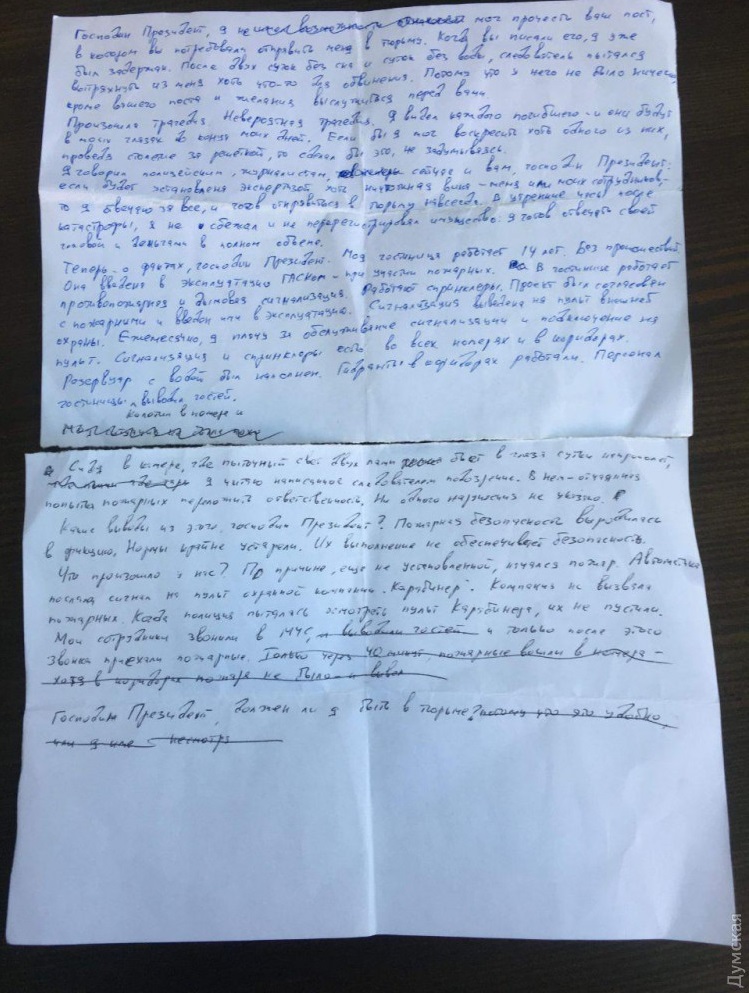 Господин Президент, я не имел возможности мог прочесть ваш пост,
в котором вы потребовали отправить меня в тюрьму. Когда вы писали его, я уже
был задержан. После двух суток без сна и суток без воды, следователь пытался
вытряхнуть из меня хоть что-то для обвинения. Потому что у него не было ничего,
кроме вашего поста и желания выслужиться перед вами
Произошла трагедия. Невероятная трагедия. Я видел каждого погибшего - и они будут
в моих глазах до конца моих дней. Если бы я мог воскресить хоть одного из них,
проведя столетие за решёткой, то сделал бы это, не задумываясь.
Я говорил полицейским, журналистам, сейчас и вам, господин Президент:
если будет установлена экспертизой хоть ничтожная вина - меня или моих сотрудников -
то я отвечаю за все, и готов отправиться в тюрьму навсегда. В утренние часы после
катастрофы, я не сбежал и не перерегистрировал имущество: я готов отвечать своей
головой и деньгами в полном объеме.
Теперь - о фактах, господин Президент. Моя гостиница работает 14 лет. Без происшествий
Она введена в эксплуатацию ГАСКом - при участии пожарных. В гостинице работает
противопожарная и дымовая сигнализация. Работают спринклеры. Проект был согласован
с пожарными и введен ими в эксплуатацию. Сигнализация выведена на пульт внешней
охраны. Ежемесячно, я плачу за обслуживание сигнализации и подключение на
пульт. Сигнализация и спринклеры есть во всех номерах и в коридорах.
Резервуар с водой был наполнен. Гидранты в коридорах работали. Персонал
гостиницы выводил гостей.
колотил в номера и
Сидя в камере, где пыточный свет двух ламп бьет в глаза сутки напролет,
я читаю написанное следователем подозрение. В нем - отчаянная
попытка пожарных переложить ответственность. Ни одного нарушения не указано.
Какие выводы из этого, господин Президент? Пожарная безопасность выродилась
в фикцию, Нормы крайне устарели. Их выполнение не обеспечивает безопасность.
Что произошло у нас? По причине, еще не установленной, начался пожар. Автоматика
послала сигнал на пульт охранной компании "Карабинер". Компания не вызвала
пожарных. Когда полиция пыталась осмотреть пульт Карабинера, их не пустили.
Мои сотрудники звонили в МЧС, и выводили гостей и только после этого
звонка приехали пожарные. Только через 40 минут, пожарные вошли в номера -
хотя в коридорах пожара не было - и
Господин Президент, должен ли я быть в тюрьме? потому что это удобно,
или я или несмотря
Думская